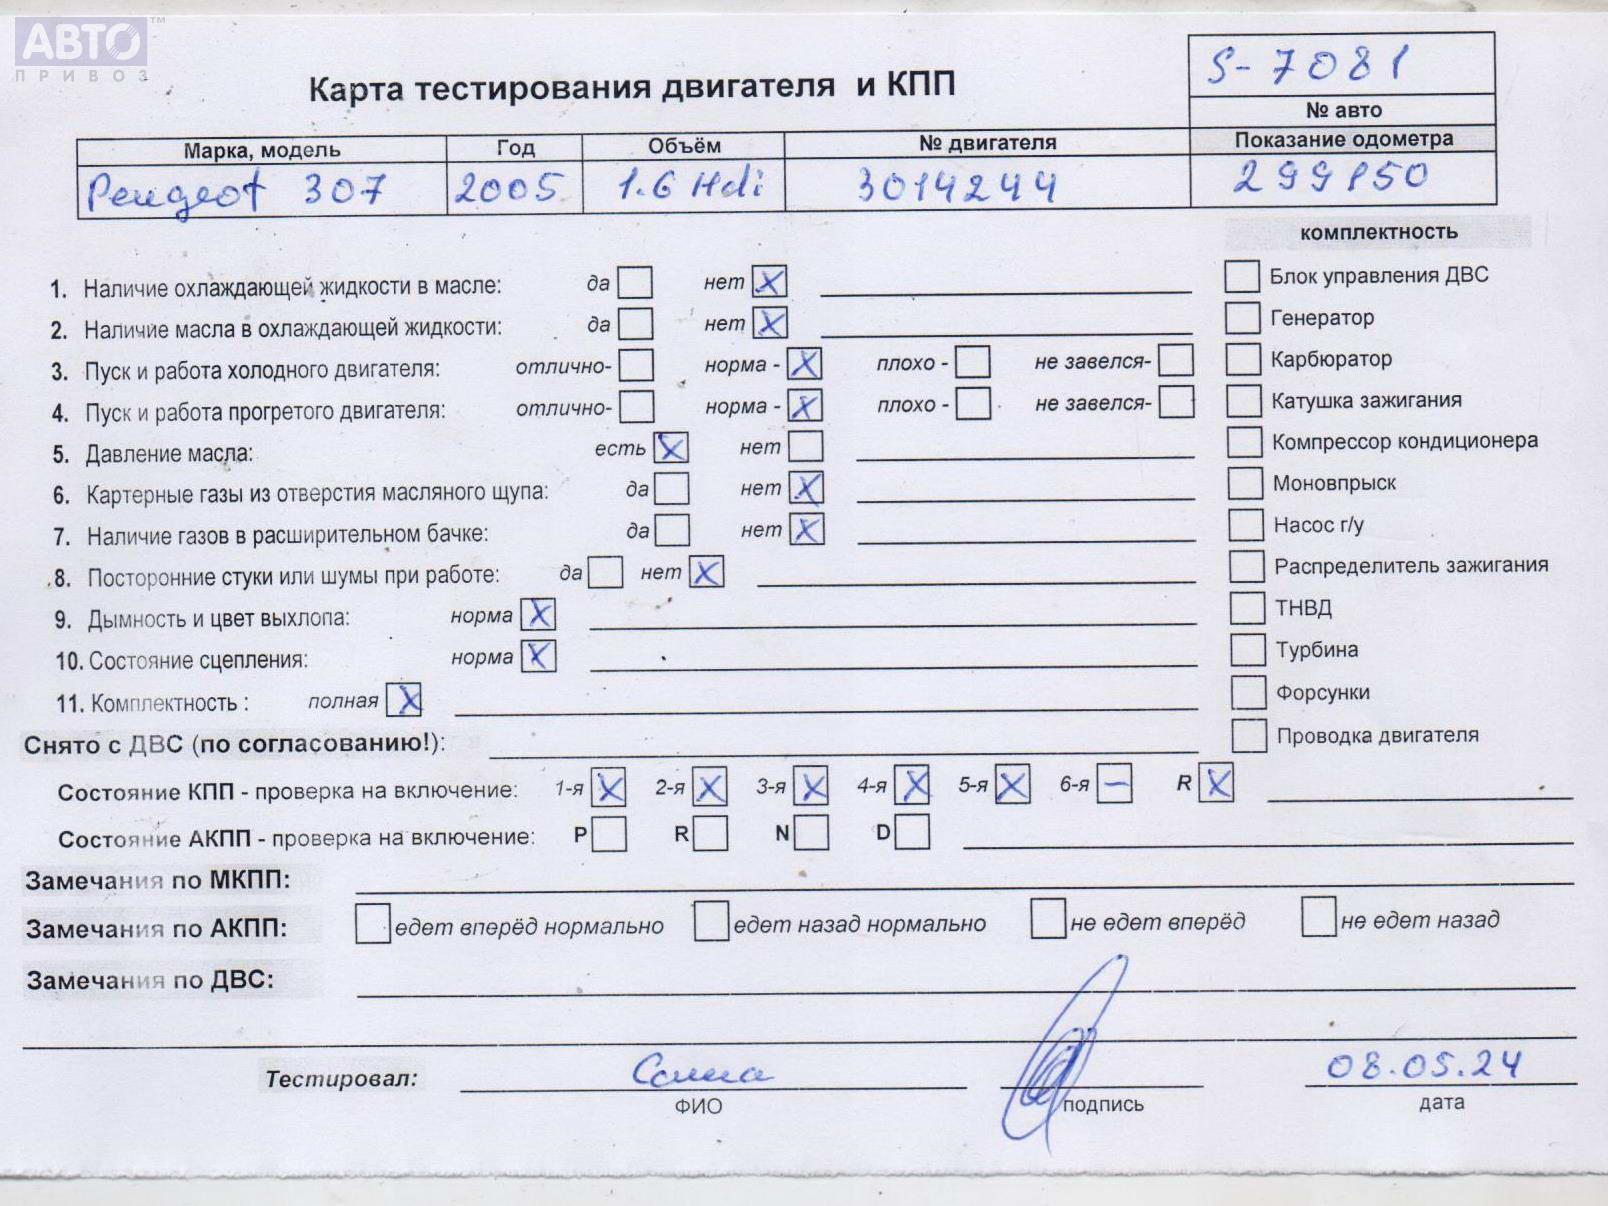 АВТО™
ПРИВОЗ
S-7081
Карта тестирования двигателя и КПП
№ авто
Марка, модель Год Объём № двигателя Показание одометра
Peugeot 307 2005 1.6 Hdi 3014244 299150
комплектность
1. Наличие охлаждающей жидкости в масле: да нет X Блок управления ДВС
2. Наличие масла в охлаждающей жидкости: да нет X Генератор
3. Пуск и работа холодного двигателя: отлично- норма - X плохо - не завелся- Карбюратор
4. Пуск и работа прогретого двигателя: отлично- норма - X плохо - не завелся- Катушка зажигания
5. Давление масла: есть X нет Компрессор кондиционера
6. Картерные газы из отверстия масляного щупа: да нет X Моновпрыск
7. Наличие газов в расширительном бачке: да нет X Насос г/у
8. Посторонние стуки или шумы при работе: да нет X Распределитель зажигания
9. Дымность и цвет выхлопа: норма X ТНВД
10. Состояние сцепления: норма X Турбина
11. Комплектность : полная X Форсунки
Снято с ДВС (по согласованию!): Проводка двигателя
Состояние КПП - проверка на включение: 1-я X 2-я X 3-я X 4-я X 5-я X 6-я – R X
Состояние АКПП - проверка на включение: P R N D
Замечания по МКПП:
Замечания по АКПП: едет вперёд нормально едет назад нормально не едет вперёд не едет назад
Замечания по ДВС:
Тестировал: 08.05.24
ФИО подпись дата